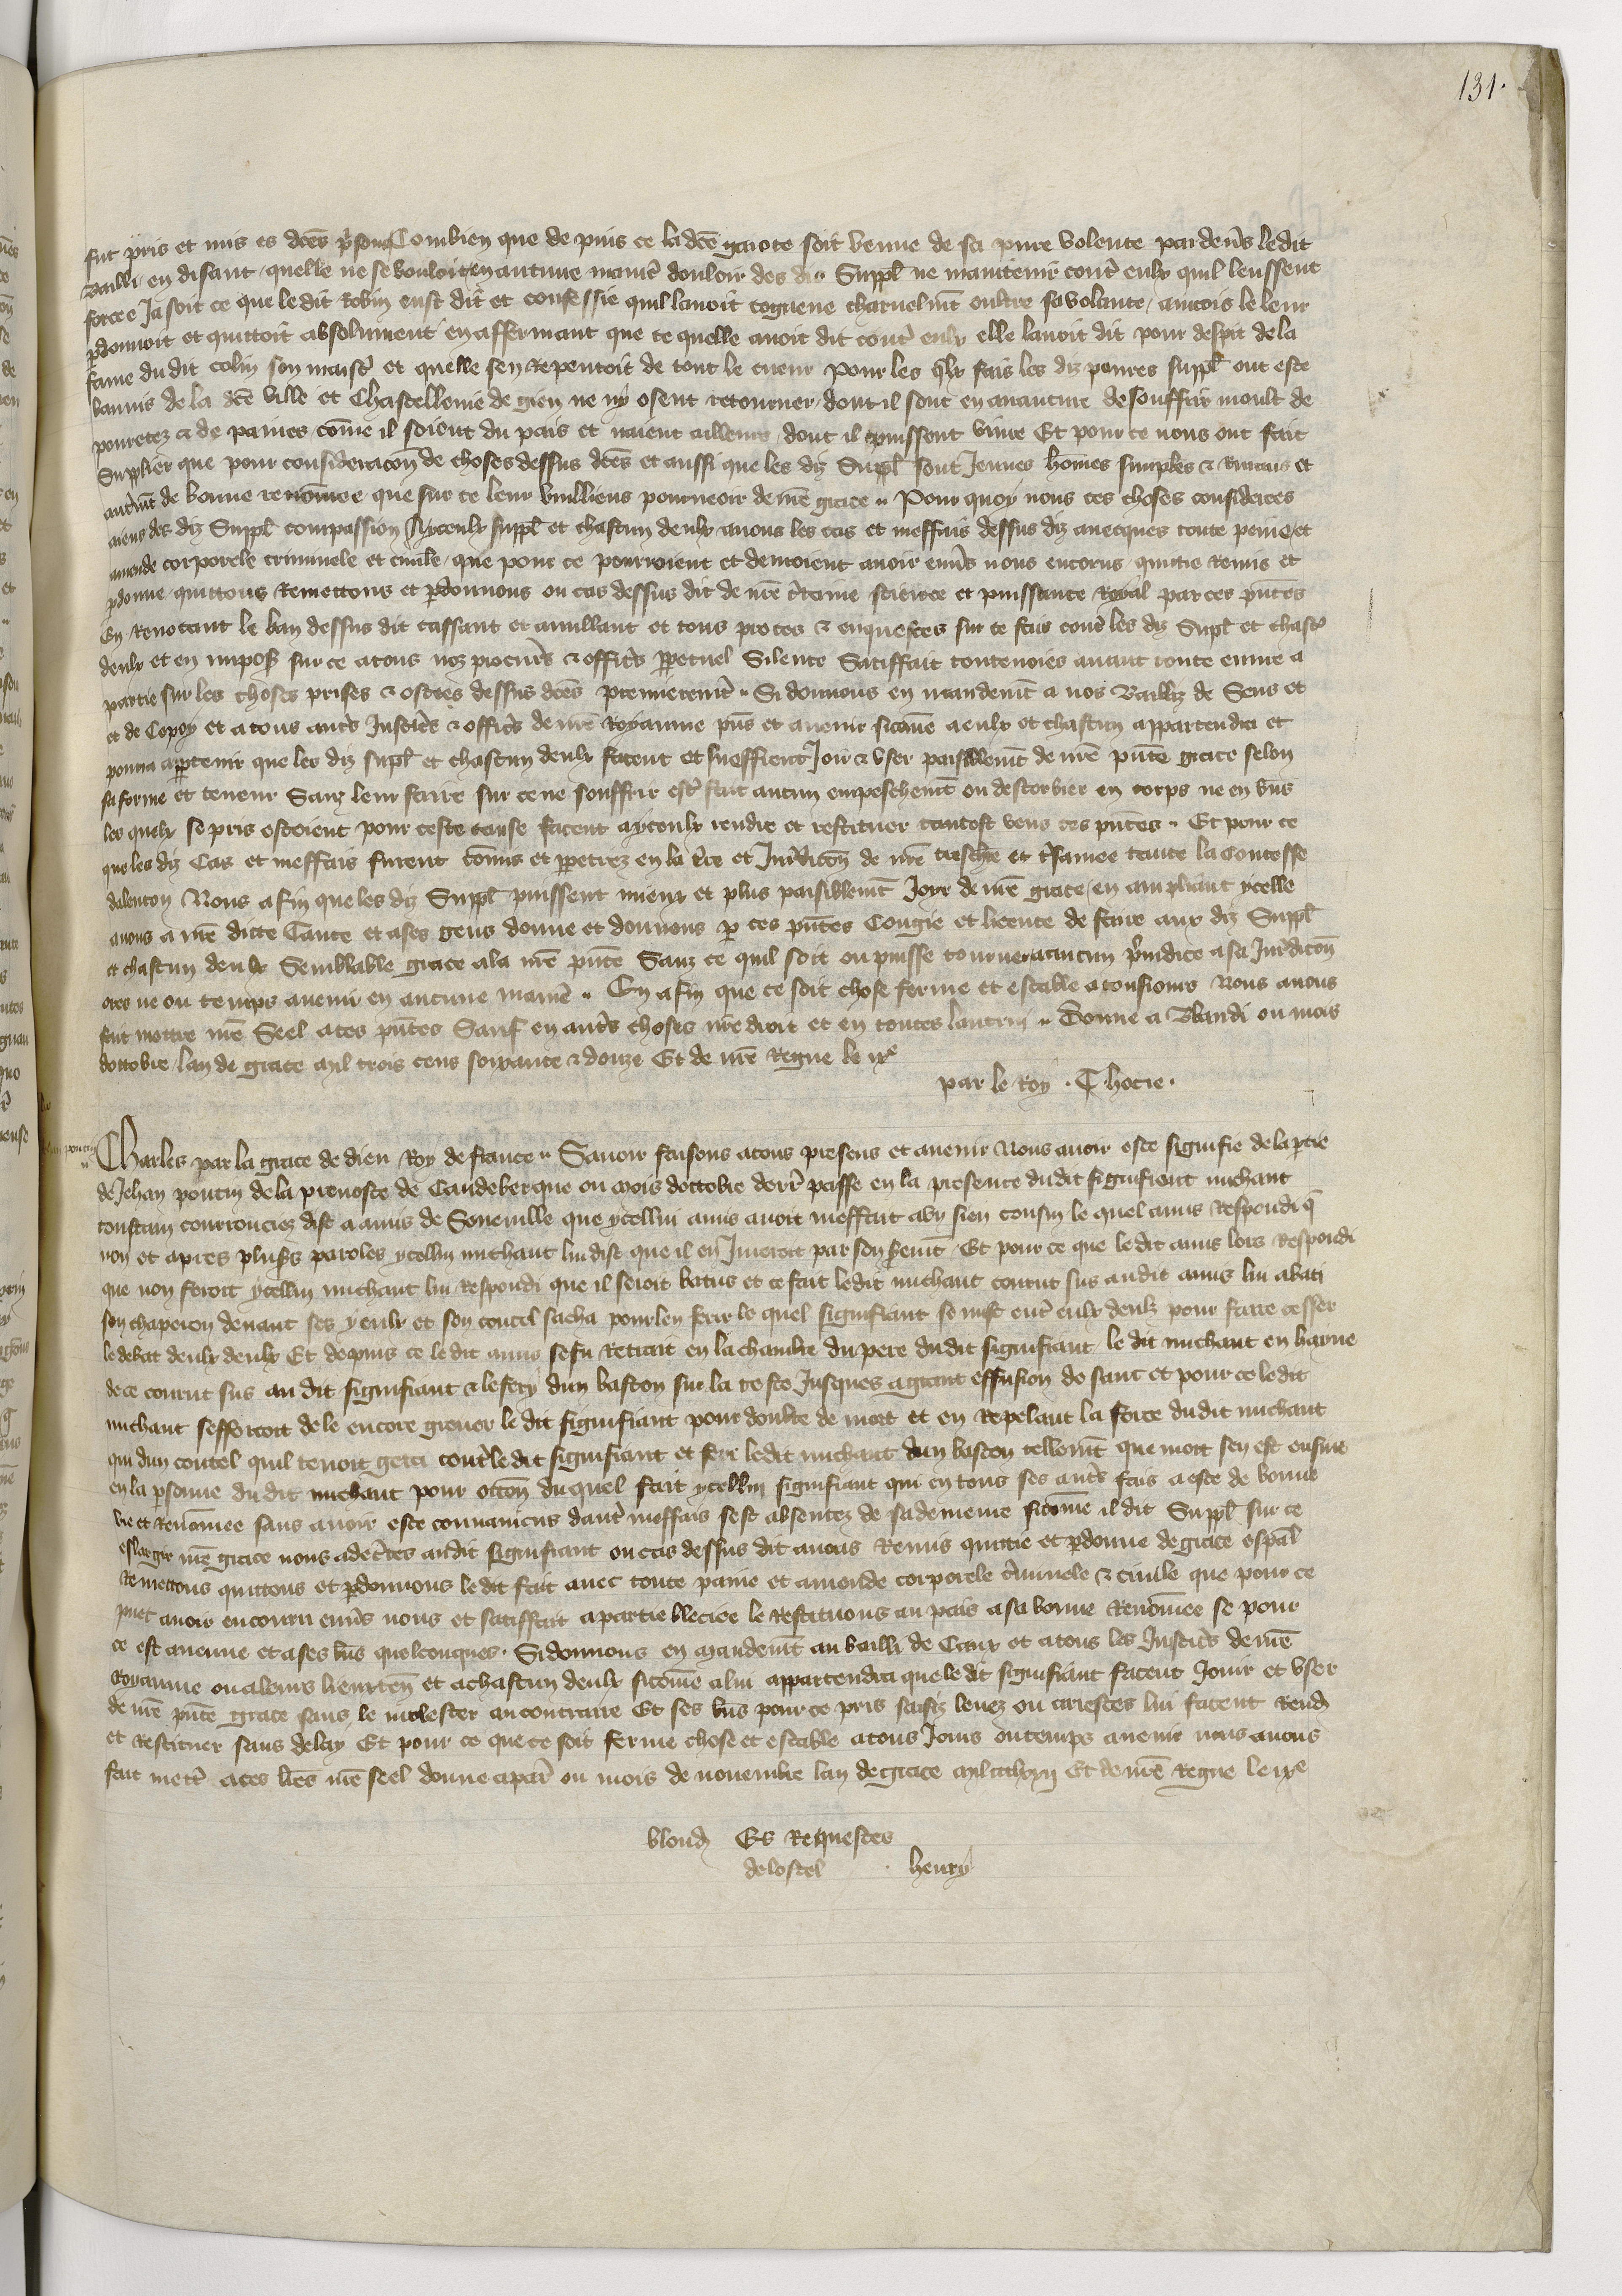 131.
fut pris et mis es dcēs p̄sons Combien que de puis ce la dcē gaiote soit venue de sa pure volente par deūs le dit
Bailli en disant quelle ne se vouloit en aucune manie᷑ douloir des diz Suppl̄ ne maintenir cont᷑ eulx quil leussent
forcee Ja soit ce que le dit Robin eust dit et confessie quil lavoit cogneue charnelmēt oultre sa volante, aincois le leur
p̱donnoit et quittoit absolument en affermant que ce quelle avoit dit cont᷑ eulx elle lavoit dit pour despit de la
fame du dit colin son maist᷑ et quelle sen Repentoit de tout le cueur Pour les qlx fais les diz poures suppl̄ ont este
bannis de la dcē ville et Chastellenie de gien ne ny osent retourner dont il sont en avanture de souffrir moult de
pouretez et de paines, cōme il soient du pais et naient ailleurs dont il puissent vivre Et pour ce nous ont fait
Supplier que pour consideracōn de choses dessus dcēs et aussi que les diz Suppl̄ sont Jeunes hōmes simples et Ruraus et
autremēt de bonne renōmee que sur ce leur vueilliens pourveoir de nr̄e grace .. Pour quoy nous ces choses considerees
aiens des diz Suppl̄ compassion Ayceulx suppl̄ et chascun deulx avons les cas et meffais dessus diz avecques toute peine et
amende corporele criminele et civile, que pour ce pourroient et devroient avoir envs̄ nous encorus, quittie Remis et
p̱donne, quittons Remettons et p̱donnons ou cas dessus dit de nr̄e c᷑taine science et puissance Royal par ces pn̄tes
En Revocant le ban dessus dit cassant et anullant et tous proces et enquestes sur ce fais cont᷑ les diz Suppl̄ et chasc᷑
deulx et en impos̄ sur ce a tous noz procur̄s et offic᷑s p̱petuel Silence Satiffait toutevoies avant toute euvre a
partie sur les choses prises et ostees dessus dcēs premieremēt .. Si donnons en mandemēt a nos Bailliz de Sens et
et de Cepoy et a tous aut᷑s Justic᷑s et offic᷑s de nr̄e Royaume pn̄s et avenir sicōme a eulx et chascun appartendra et
pourra app̱tenir que les diz suppl̄ et chascun deulx facent et sueffrent Joir et user paisiblemēt de nr̄e pn̄te grace selon
sa forme et teneur Sanz leur faire sur ce ne souffrir est᷑ fait aucun empeschemēt ou destorbier en corps ne en biēs
les quelx se pris estoient pour ceste cause facent a yceulx rendre et restituer tantost veus ces pn̄tes .. Et pour ce
que les diz Cas et meffais furent cōmis et p̱petrez en la t᷑re et Jur̄dicōn de nr̄e treschiē et t᷑samee tante la Contesse
dalencon Nous afin que les diz Suppl̄ puissent mieux et plus paisiblemēt Joyr de nr̄e grace, en ampliant ycelle
avons a nr̄e dicte Tante et a ses gens donne et donnons p̱ ces pn̄tes Congie et licence de faire aux diz Suppl̄
et chascun deulx Semblable grace a la nr̄e pn̄te Sanz ce quil soit ou puisse tourner a aucun p̄iudice a sa Jur̄dicōn
ores ne ou temps avenir en aucune manie᷑ .. En afin que ce soit chose ferme et estable a tousiours Nous avons
fait mettre nr̄e Seel a ces pn̄tes Sauf en aut᷑s choses nr̄e droit et en toutes lautrui .. Donne a Blandi ou mois
doctobre lan de grace mil trois cens soixante et douze Et de nr̄e Regne le ixe
par le Roy . Thocie .
Jehan poucin
Charles par la grace de dieu Roy de france .. Savoir faisons a tous presens et avenir Nous avoir este signifie de la p̱tie
de Jehan poucin de la prevoste de Caudebec que ou mois doctobre derr̄ passe en la presence du dit signifient michaut
constain courrouciez dist a amis de Seneville que ycellui amis avoit meffait a un sien cousin le quel amis Respondi q̄
non et apres plus᷑s paroles ycellui michaut lui dist que il en Jureroit par son s᷑emēt, Et pour ce que le dit amis lors Respondi
que non feroit ycellui michaut lui Respondi que il seroit batus et ce fait le dit michaut courut sus au dit amis lui abati
son chaperon devant ses yeulx et son coutel sacha pour len ferir le quel signifiant se mist ent᷑ eulx deulx pour faire cesser
le debat deulx deulx Et depuis ce le dit amis sefu Retrait en la chambre du pere du dit signifiant le dit michaut en hayne
de ce courut sus au dit signifiant et le fery dun baston sur la teste Jusques a grant effusion de sanc et pour ce le dit
michaut sefforcoit de le encore grever le dit signifiant pour doubte de mort et en Repelant la force du dit michaut
qui dun coutel quil tenoit geta cont᷑ le dit signifiant et feri le dit michaut dun baston tellemēt que mort sen est ensuie
en la p̱sonne du dit michaut pour occōn du quel fait ycellui signifiant qui en tous ses aut᷑s fais a este de bonne
vie et Renōmee sans avoir este convaincus daut᷑ meffais sest absentez de sa demeure sicōme il dit Suppl̄ sur ce
eslargir nr̄e grace nous adec᷑tes au dit signifiant ou cas dessus dit avons Remis quittie et p̱donne de grace esp̄al
Remettons quittons et p̱donnons le dit fait avec toute paine et amende corporele c᷑minele et civille que pour ce
puet avoir encouru envs̄ nous et satiffait a partie bleciee le Restituons au pais a sa bonne Renōmee se pour
ce est avenue et a ses biēs quelconques. Si donnons en mandemēt au bailli de Caux et a tous les Justic᷑s de nr̄e
Royaume ou a leurs lieuxten̄ et a chascun deulx sicōme a lui appartendra que le dit signifiant facent Jouir et user
de nr̄e pn̄te grace sans le molester au contraire Et ses biēs pour ce pris saisiz levez ou arrestes lui facent Rend᷑
et Restituer sans delay Et pour ce que ce soit ferme chose et estable a tous Jours ou temps avenir nous avons
fait mett᷑ a ces lr̄es nr̄e seel donne a par̄ ou mois de novembre lan de grace mil ccclxxij Et de nr̄e Regne le ixe
blond᷑ Es Requestes
de lostel . henry